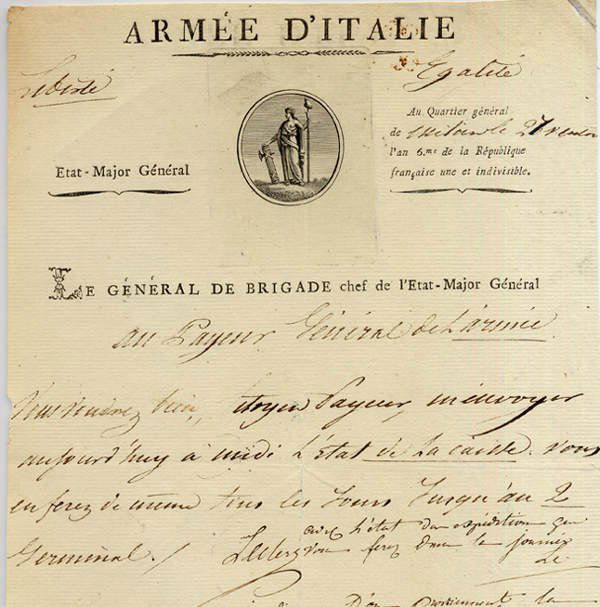 ARMÉE D'ITALIE
Liberté
Egalité
Au Quartier général
de le 27
l'an 6.me de la République
française une et indivisible.
Etat-Major Général
LE GÉNÉRAL DE BRIGADE chef de l'Etat-Major Général
au Payeur Général de L'armée
Vous voudrez bien, citoyen Payeur, m'envoyer
aujourd'huy à midi L'Etat de La caisse. vous
en ferez de même tous les Jours Jusqu'au 2
Germinal. /
avec l'état des expéditions que
vous ferez dans la journée
Le